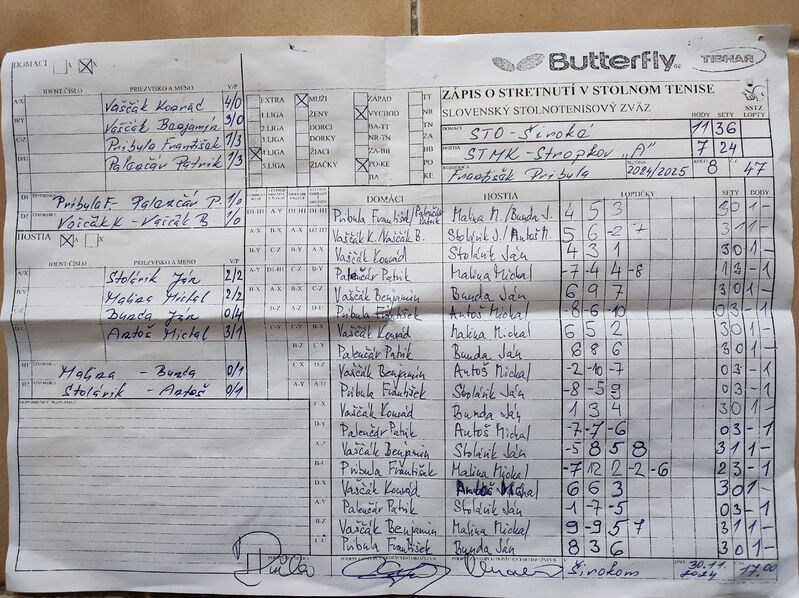 Butterfly TIBHAR
DOMÁCI A X
ZÁPIS O STRETNUTÍ V STOLNOM TENISE
SLOVENSKÝ STOLNOTENISOVÝ ZVÄZ
SSTZ
BODY SETY LOPTY
IDENT ČÍSLO PRIEZVISKO A MENO V/P
A/X Vaščák Konrád 4/0
B/Y Vaščák Benjamín 3/0
Pribula František 1/3
Palenčár Patrik 1/3
Pribula F - Palenčár P. 1/0
Vaščák K - Vaščák B. 1/0
EXTRA MUŽI ZÁPAD TT
1.LIGA ŽENY VÝCHOD NR
2.LIGA DORCI BA-TT
3.LIGA DORKY NR-TN
4.LIGA ŽIACI ZA-BB
5.LIGA ŽIAČKY PO-KE
DOMÁCI STO-Široké 11 36
HOSTIA STMK-Stropkov "A" 7 24
František Pribula SEZÓNA 2024/2025 KOLO 8 Č.Z. 47
HOSTIA A
IDENT ČÍSLO PRIEZVISKO A MENO V/P
A/X Stolárik Ján 2/2
Malina Michal 2/2
Bunda Ján 0/4
Antoš Michal 3/1
Malina - Bunda 0/1
Stolárik - Antoš 0/1
DOMÁCI HOSTIA LOPTIČKY SETY BODY
Pribula František/Palenčár Patrik Malina M./Bunda J. 4 5 3 3 0 1 -
Vaščák K./Vaščák B. Stolárik J./Antoš M. 5 6 -2 7 3 1 1 -
Vaščák Konrád Stolárik Ján 4 3 1 3 0 1 -
Palenčár Patrik Malina Michal -7 -4 4 -8 1 3 - 1
Vaščák Benjamín Bunda Ján 6 9 7 3 0 1 -
Pribula František Antoš Michal -8 -6 -10 0 3 - 1
Vaščák Konrád Malina Michal 6 5 2 3 0 1 -
Palenčár Patrik Bunda Ján 6 8 6 3 0 1 -
Vaščák Benjamín Antoš Michal -2 -10 -7 0 3 - 1
Pribula František Stolárik Ján -8 -5 -9 0 3 - 1
Vaščák Konrád Bunda Ján 1 3 4 3 0 1 -
Palenčár Patrik Antoš Michal -7 -7 -6 0 3 - 1
Vaščák Benjamín Stolárik Ján -5 8 5 8 3 1 1 -
Pribula František Malina Michal -7 12 2 -2 -6 2 3 - 1
Vaščák Konrád Antoš Michal 6 6 3 3 0 1 -
Palenčár Patrik Stolárik Ján -1 -7 -5 0 3 - 1
Vaščák Benjamín Malina Michal 9 -9 5 7 3 1 1 -
Pribula František Bunda Ján 8 3 6 3 0 1 -
V Širokom DŇA 30.11. 2024 17.00